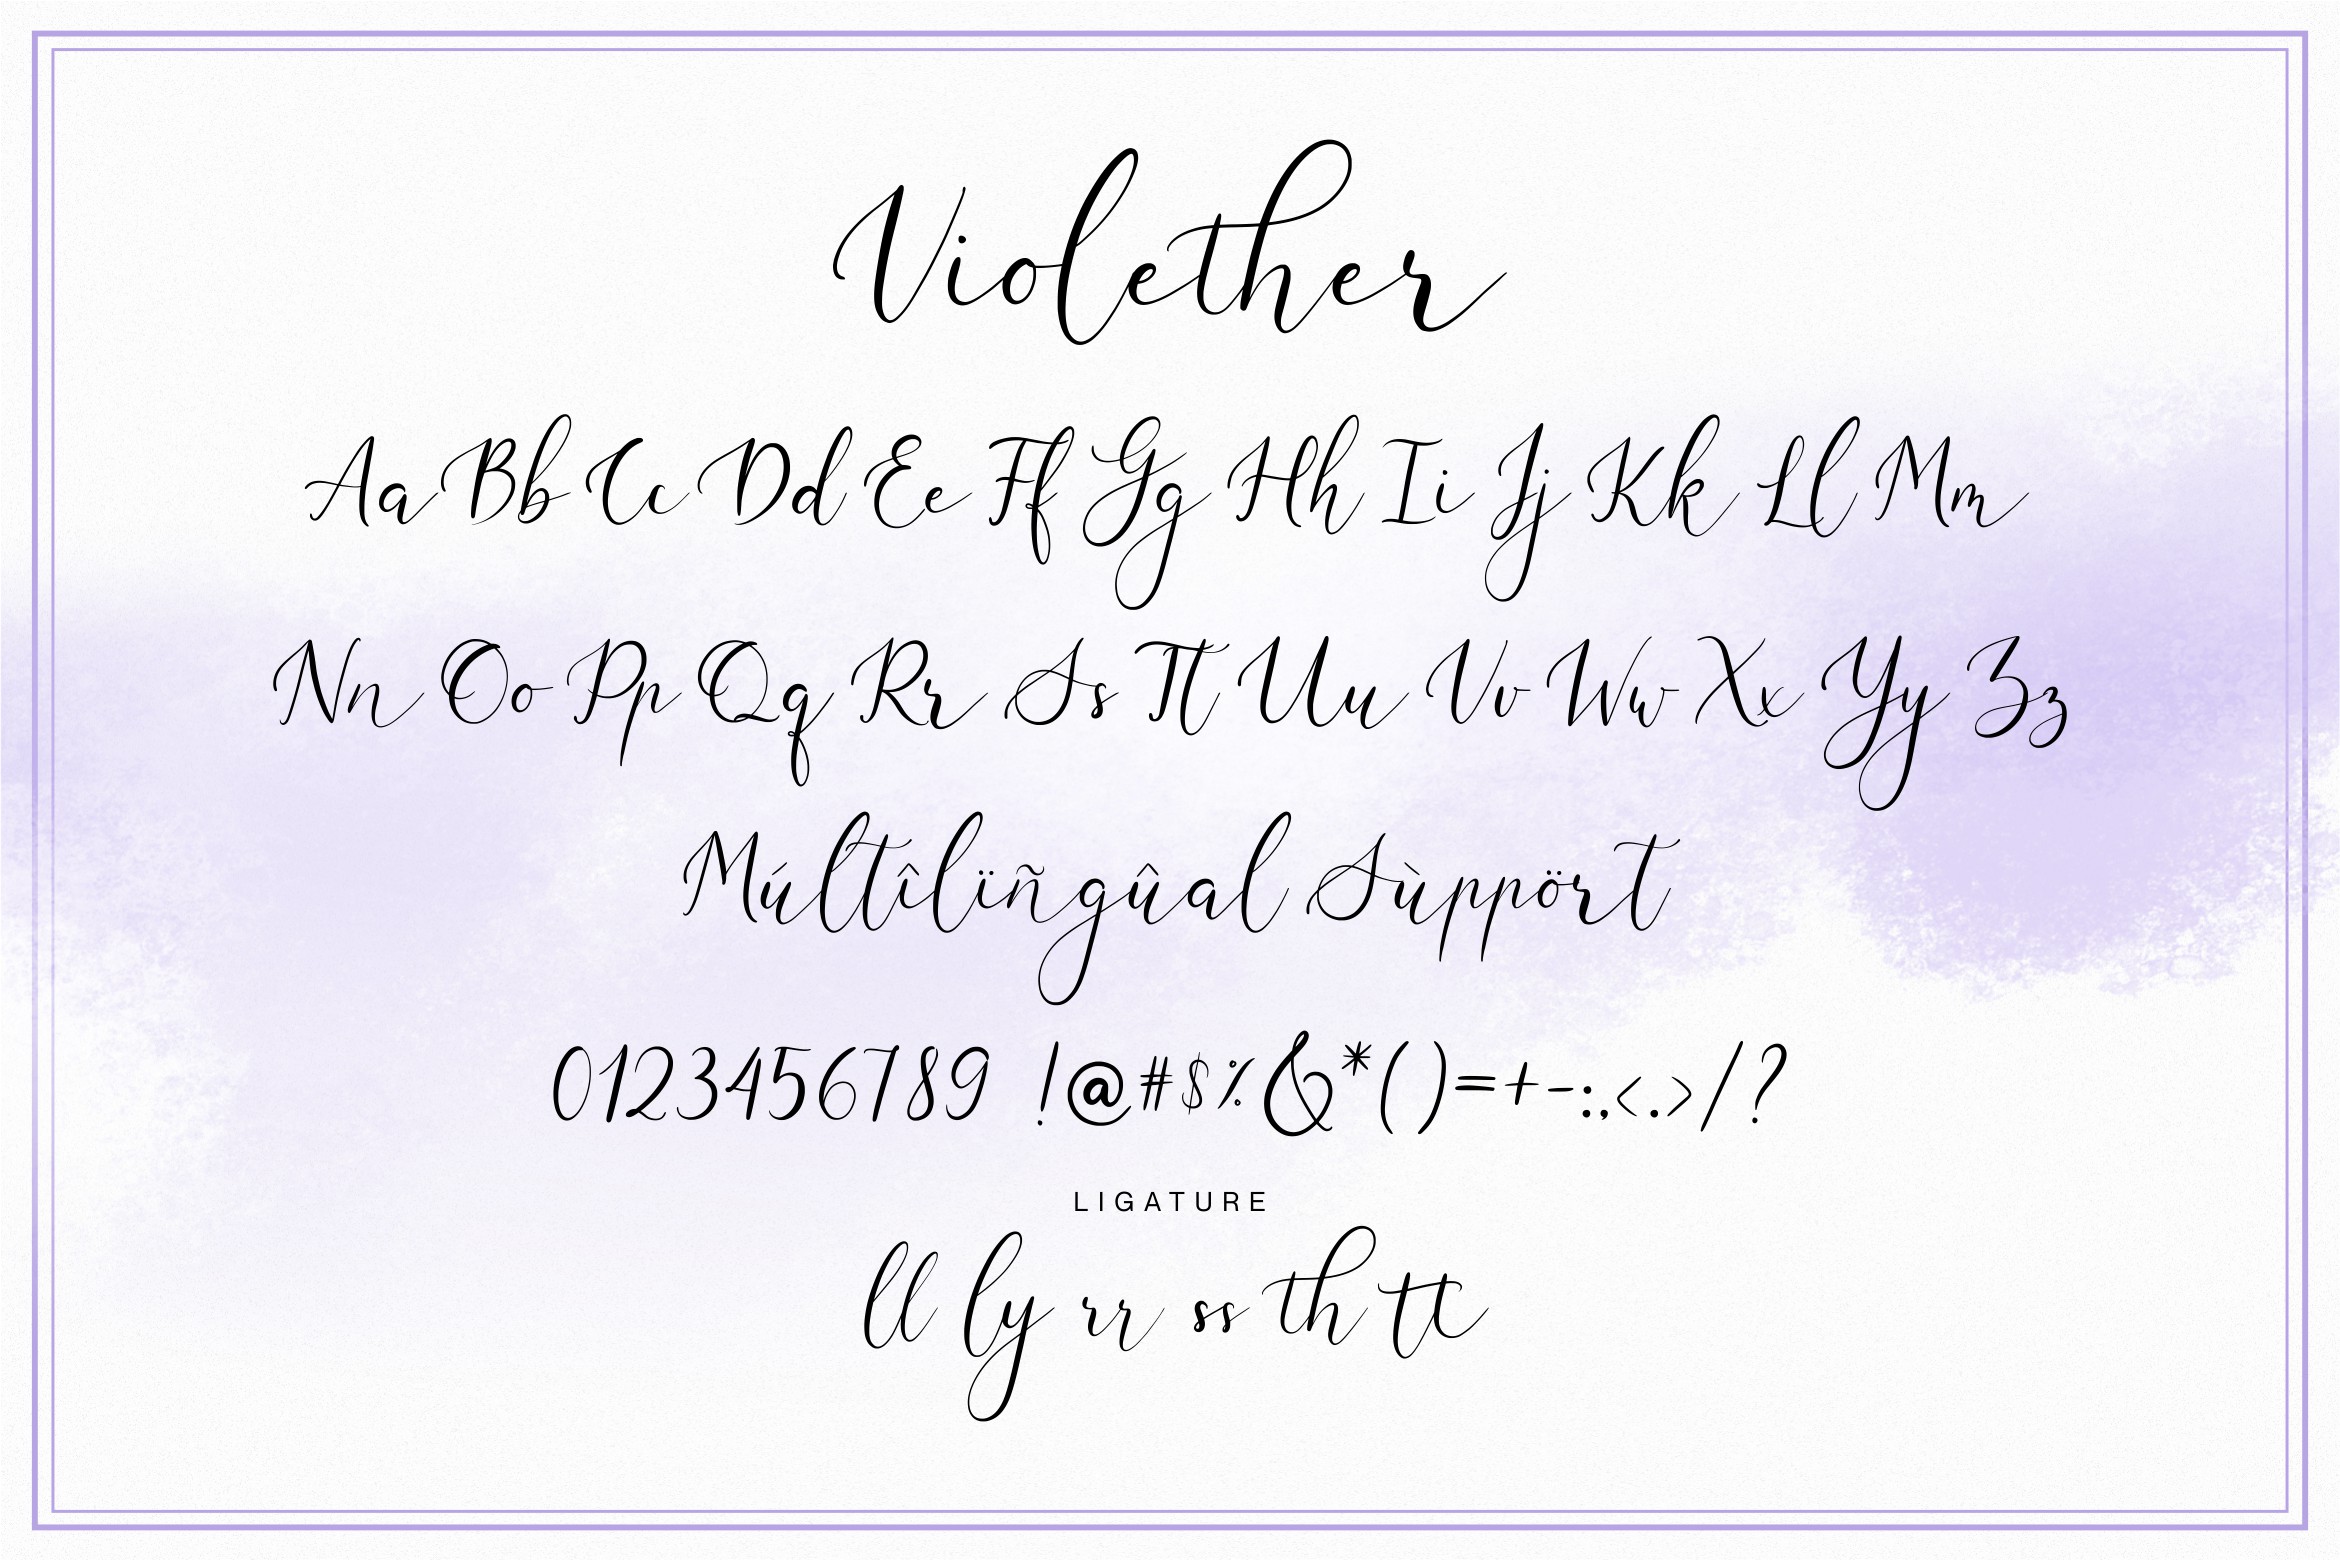 Violether
Aa Bb Cc Dd Ee Ff Gg Hh Ii Jj Kk Ll Mm
Nn Oo Pp Qq Rr Ss Tt Uu Vv Ww Xx Yy Zz
Múltîlïñgûal Sùppört
0123456789 !@#$%&*()=+-:;,<.>/?
LIGATURE
ll ly rr ss th tt